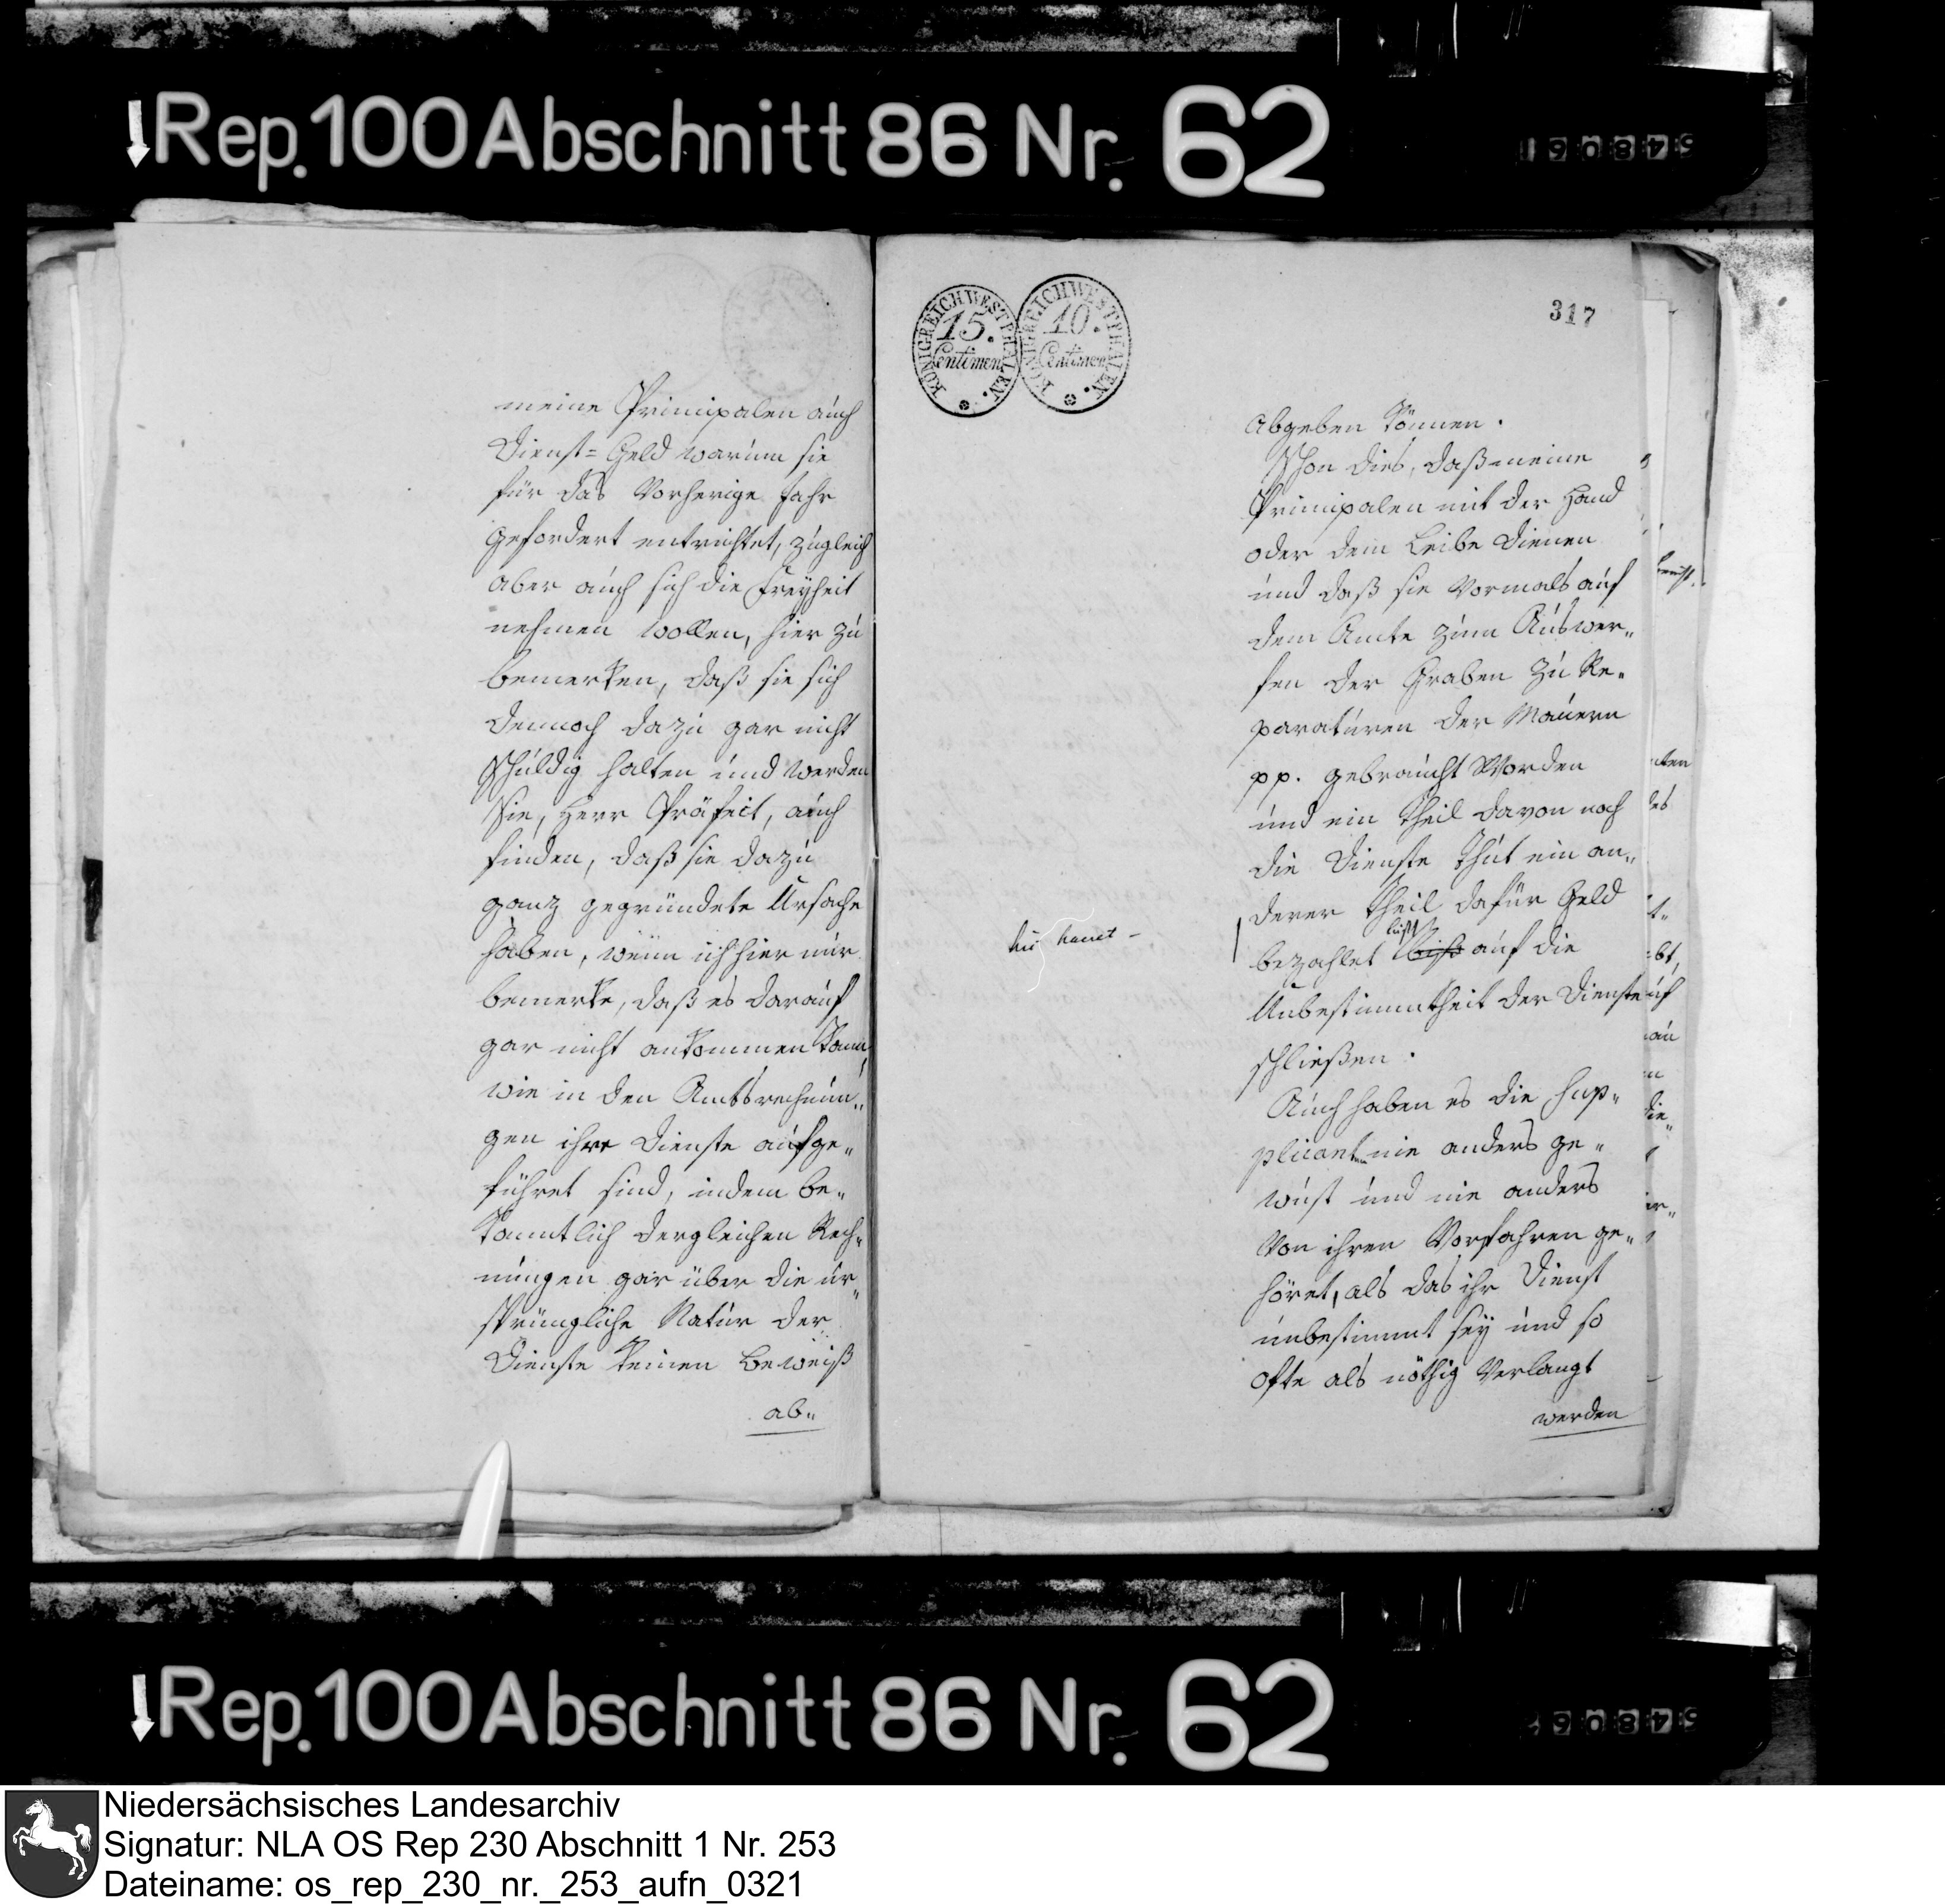 Rep. 100 Abschnitt 86 Nr. 62
meine Principalen auch
Dienst=Geld warum sie
für das Vorherige Jahr
gefordert entrichtet, zugleich
aber auch sich die Freyheit
nehmen wollen, hier zu
bemerken, daß sie sich
dennoch dazu gar nicht
schuldig halten und werden
Sie, Herr Präfect, auch
finden, daß sie dazu
ganz gegründete Ursache
haben, wenn ich hier nur
bemerke, daß es darauf
gar nicht ankommen kann,
wie in den Amtsrechnun„
gen ihre Dienste aufge„
führet sind, indem be„
kanntlich dergleichen Rech„
nungen gar über die ur„
sprüngliche Natur der
Dienste keinen Beweiß
ab„
KÖNIGREICH WESTPHALEN.
15.
Centimen
KÖNIGREICH WESTPHALEN.
10.
Centimen
317
abgeben können.
Schon dies, daß meine
Principalen mit der Hand
oder dem Leibe dienen
und daß sie vormals auf
dem Amte zum Auswer„
fen der Graben zu Re„
paraturen der Mauern
pp. gebraucht worden
und ein Theil davon noch
die Dienste thut ein an„
derer Theil dafür Geld
bezahlet läßt auf die
Unbestimmtheit der Dienste
schließen.
Auch haben es die Sup„
plicanten nie anders ge„
wust und nie anders
von ihren Vorfahren ge„
höret, als das ihr Dienst
unbestimmt sey und so
ofte als nöthig verlangt
werden
Rep. 100 Abschnitt 86 Nr. 62
Niedersächsisches Landesarchiv
Signatur: NLA OS Rep 230 Abschnitt 1 Nr. 253
Dateiname: os_rep_230_nr._253_aufn_0321